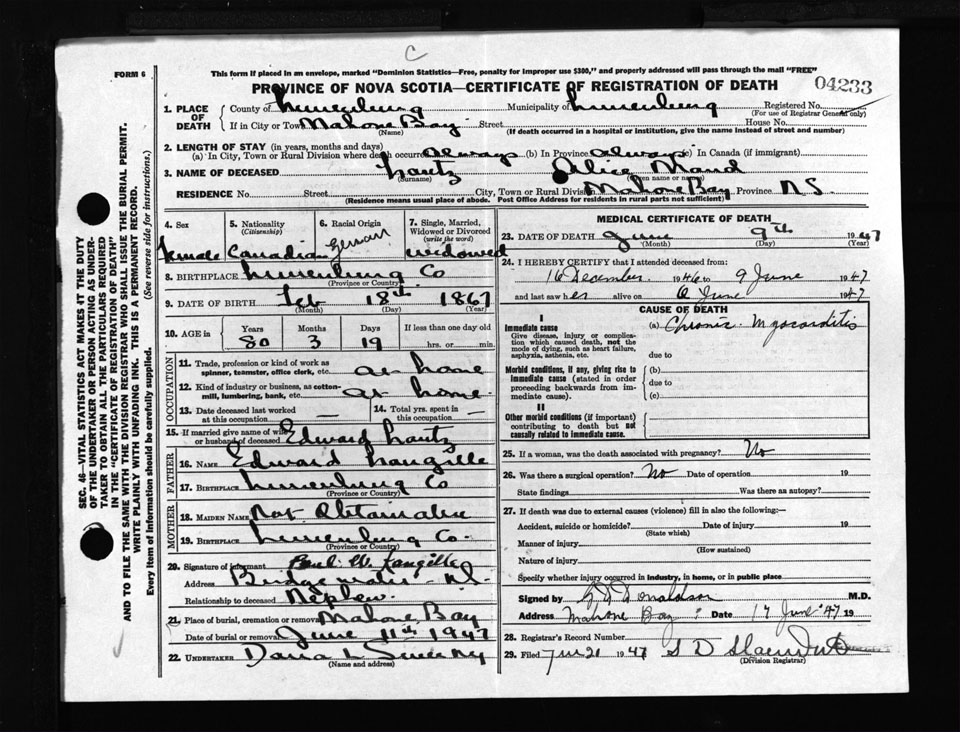 C
FORM 6
This form if placed in an envelope, marked "Dominion Statistics—Free, penalty for improper use $300," and properly addressed will pass through the mail "FREE"
PROVINCE OF NOVA SCOTIA—CERTIFICATE OF REGISTRATION OF DEATH
04233
SEC. 46—VITAL STATISTICS ACT MAKES IT THE DUTY
OF THE UNDERTAKER OR PERSON ACTING AS UNDER-
TAKER TO OBTAIN ALL THE PARTICULARS REQUIRED
IN THE "CERTIFICATE OF REGISTRATION OF DEATH"
AND TO FILE THE SAME WITH THE DIVISION REGISTRAR WHO SHALL ISSUE THE BURIAL PERMIT.
WRITE PLAINLY WITH UNFADING INK. THIS IS A PERMANENT RECORD.
Every item of Information should be carefully supplied. (See reverse side for instructions.)
1. PLACE OF DEATH
County of Lunenburg Municipality of Lunenburg Registered No.
(For use of Registrar General only)
If in City or Town Mahone Bay Street House No.
(Name) (If death occurred in a hospital or institution, give the name instead of street and number)
2. LENGTH OF STAY (in years, months and days)
(a) In City, Town or Rural Division where death occurred always (b) In Province always (c) In Canada (if immigrant)
3. NAME OF DECEASED Hautz Alice Maud
(Surname) (Given name or names)
RESIDENCE No. Street City, Town or Rural Division Mahone Bay Province N S
(Residence means usual place of abode. Post Office Address for residents in rural parts not sufficient)
4. Sex 5. Nationality (Citizenship) 6. Racial Origin 7. Single, Married, Widowed or Divorced (write the word)
Female Canadian German widowed
8. BIRTHPLACE Lunenburg Co
(Province or Country)
9. DATE OF BIRTH Feb 18th 1867
(Month) (Day) (Year)
10. AGE in Years Months Days If less than one day old
80 3 19 hrs. or min.
OCCUPATION
11. Trade, profession or kind of work as spinner, teamster, office clerk, etc. at home
12. Kind of industry or business, as cotton-mill, lumbering, bank, etc. at home
13. Date deceased last worked at this occupation — 14. Total yrs. spent in this occupation —
15. If married give name of wife or husband of deceased Edward Hautz
FATHER
16. NAME Edward Langille
17. BIRTHPLACE Lunenburg Co
(Province or Country)
MOTHER
18. MAIDEN NAME Not Obtainable
19. BIRTHPLACE Lunenburg Co.
(Province or Country)
20. Signature of informant Paul W. Langille
Address Bridgewater N.S.
Relationship to deceased Nephew.
21. Place of burial, cremation or removal Mahone Bay
Date of burial or removal June 11th 1947
22. UNDERTAKER Sweeny
(Name and address)
MEDICAL CERTIFICATE OF DEATH
23. DATE OF DEATH June 9th 1947
(Month) (Day) (Year)
24. I HEREBY CERTIFY that I attended deceased from:
16 December 1946 to 9 June 1947
and last saw her alive on 6 June 1947
CAUSE OF DEATH
I
Immediate cause (a) Chronic Myocarditis
Give disease, injury or complication which caused death, not the mode of dying, such as heart failure, asphyxia, asthenia, etc. due to
Morbid conditions, if any, giving rise to immediate cause (stated in order proceeding backwards from immediate cause). (b) due to (c)
II
Other morbid conditions (if important) contributing to death but not causally related to immediate cause.
25. If a woman, was the death associated with pregnancy? No
26. Was there a surgical operation? No Date of operation 19
State findings Was there an autopsy?
27. If death was due to external causes (violence) fill in also the following:—
Accident, suicide or homicide? Date of injury 19
(State which)
Manner of injury
(How sustained)
Nature of injury
Specify whether injury occurred in industry, in home, or in public place
Signed by Donaldson M.D.
Address Mahone Bay Date 17 June '47 19
28. Registrar's Record Number
29. Filed June 21 1947 S D
(Division Registrar)